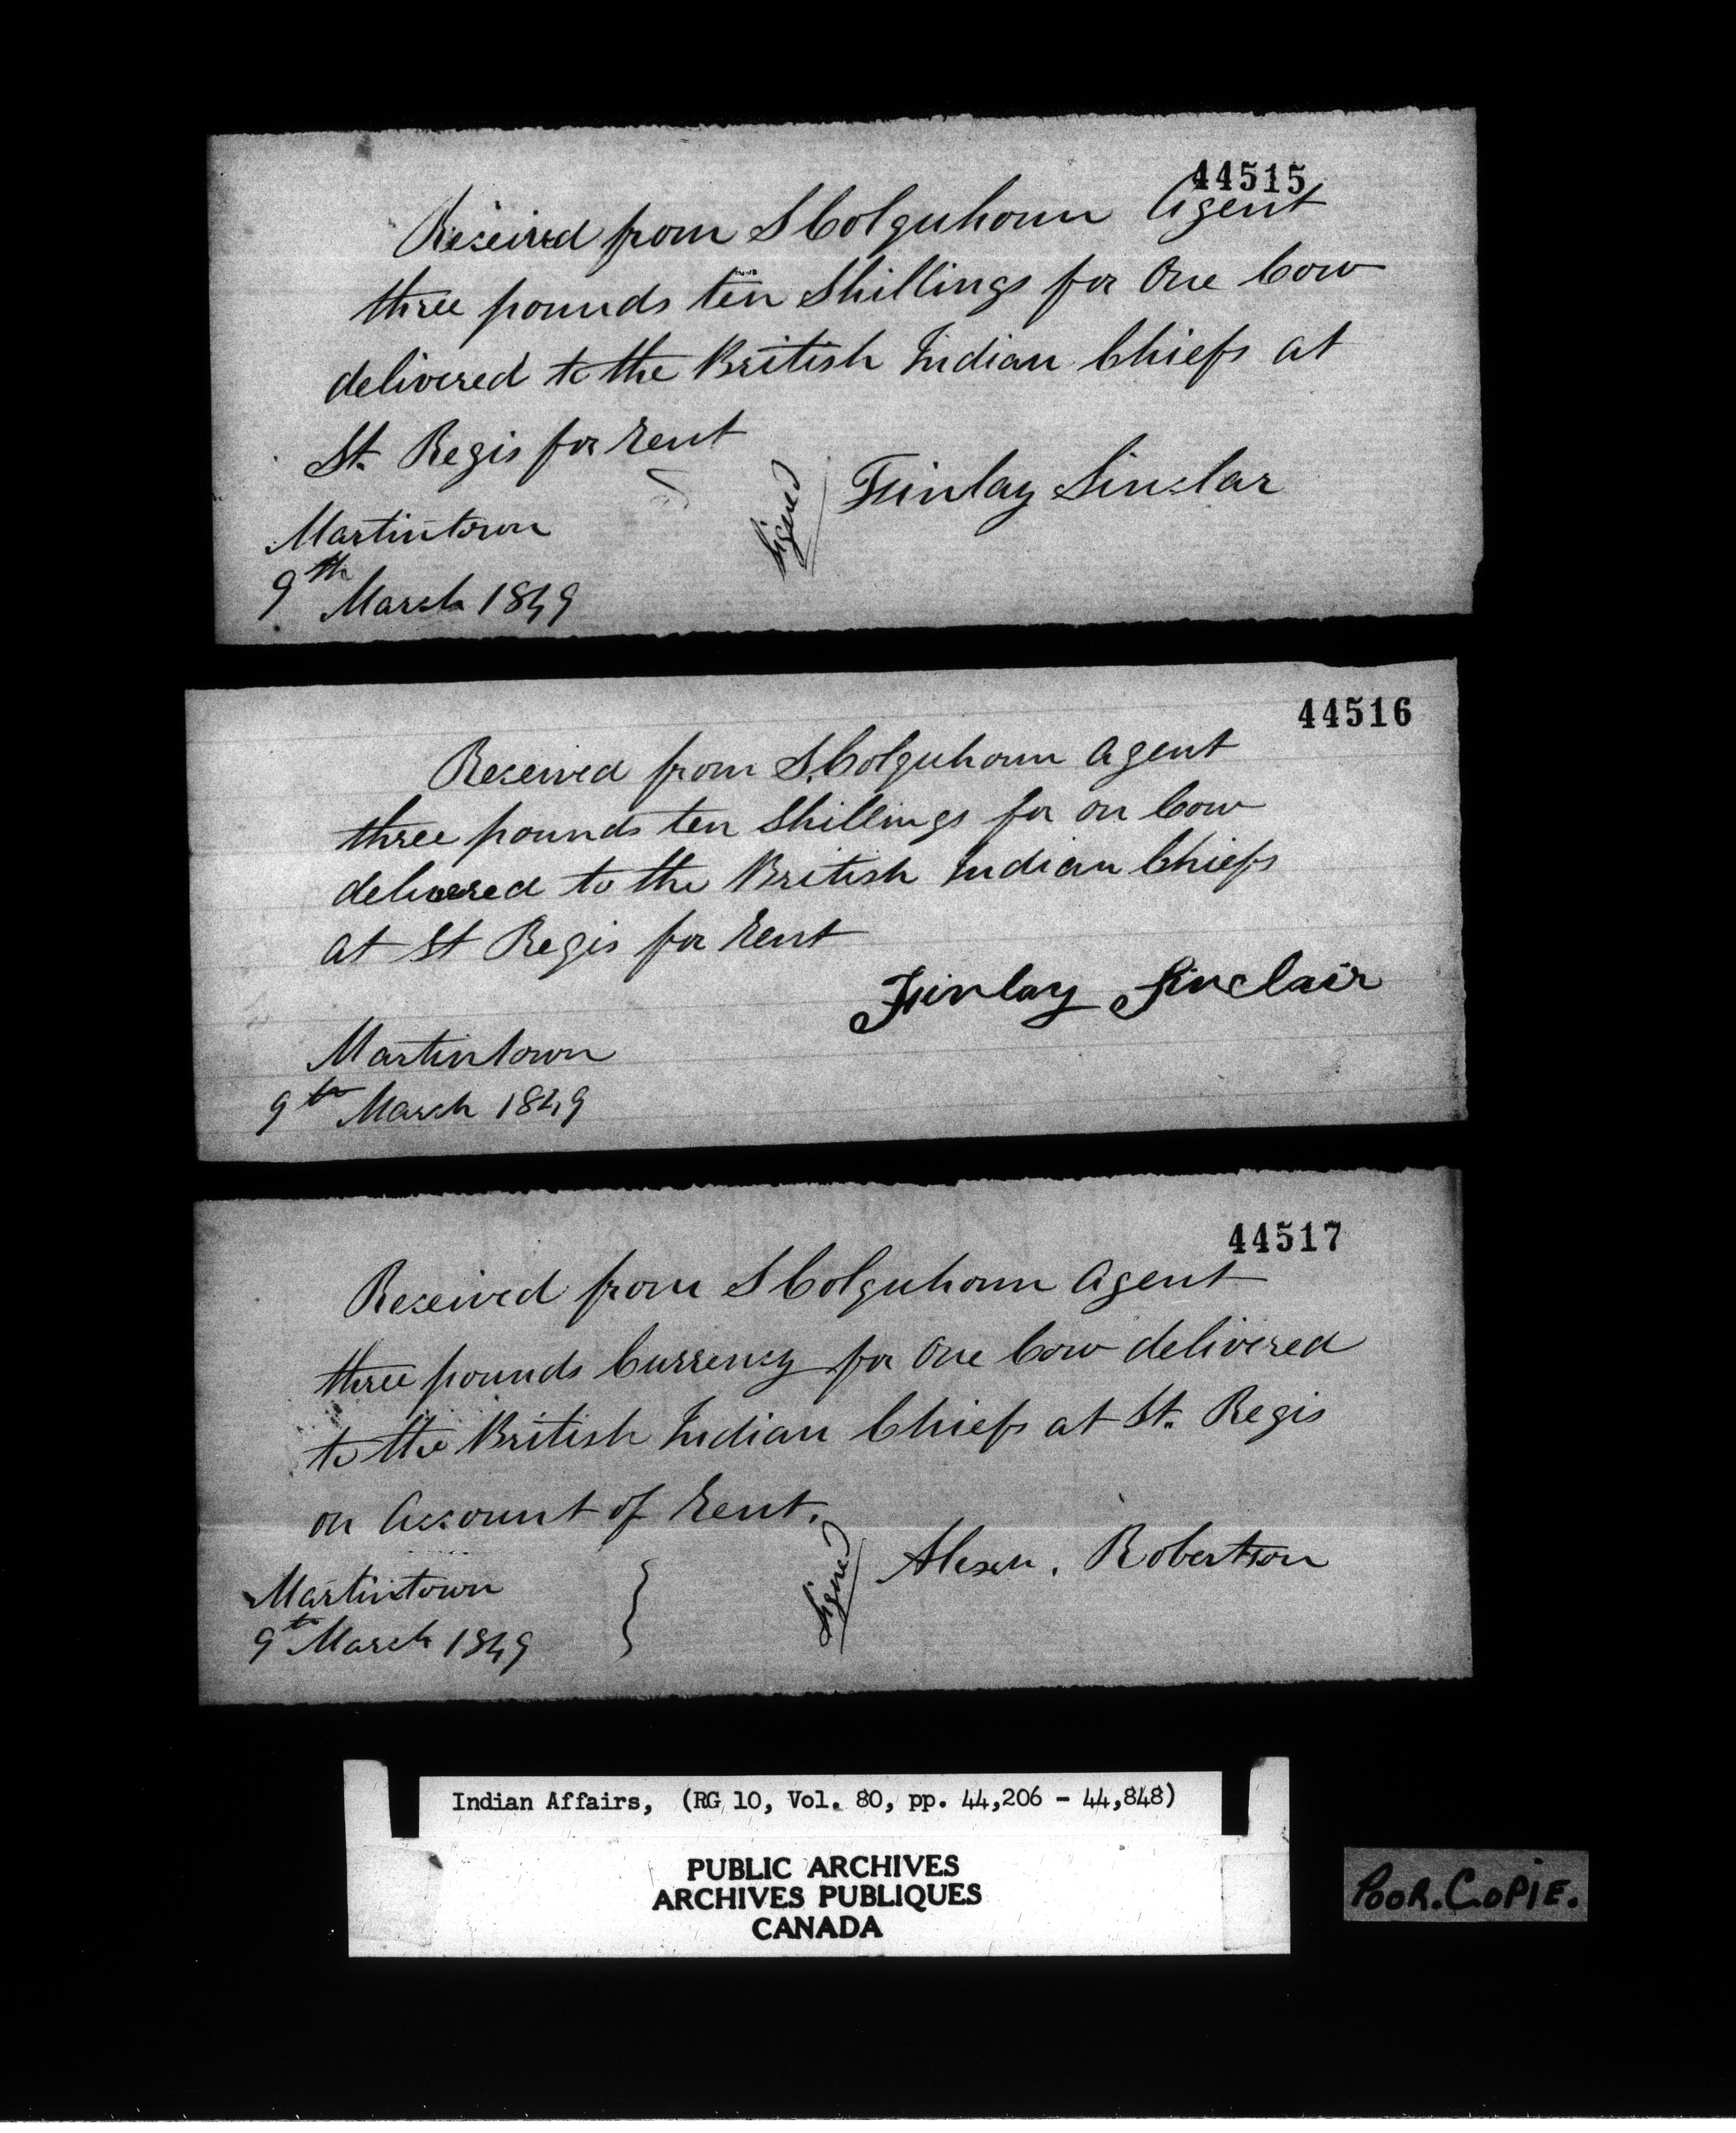 44515
Received from S Colquhoun Agent
three pounds ten Shillings for One Cow
delivered to the British Indian Chiefs at
St. Regis for rent
Signed Finlay Sinclar
Martintown
9th March 1849
44516
Received from S. Colquhoun Agent
three pounds ten Shillings for on Cow
delivered to the British Indian Chiefs
at St Regis for rent
Finlay Sinclair
Martintown
9th March 1849
44517
Received from S Colquhoun Agent
three pounds Currency for One Cow delivered
to the British Indian Chiefs at St. Regis
on Account of rent.
Signed Alexr. Robertson
Martintown
9th March 1849
Indian Affairs, (RG 10, Vol. 80, pp. 44,206 - 44,848)
PUBLIC ARCHIVES
ARCHIVES PUBLIQUES
CANADA
POOR.COPIE.